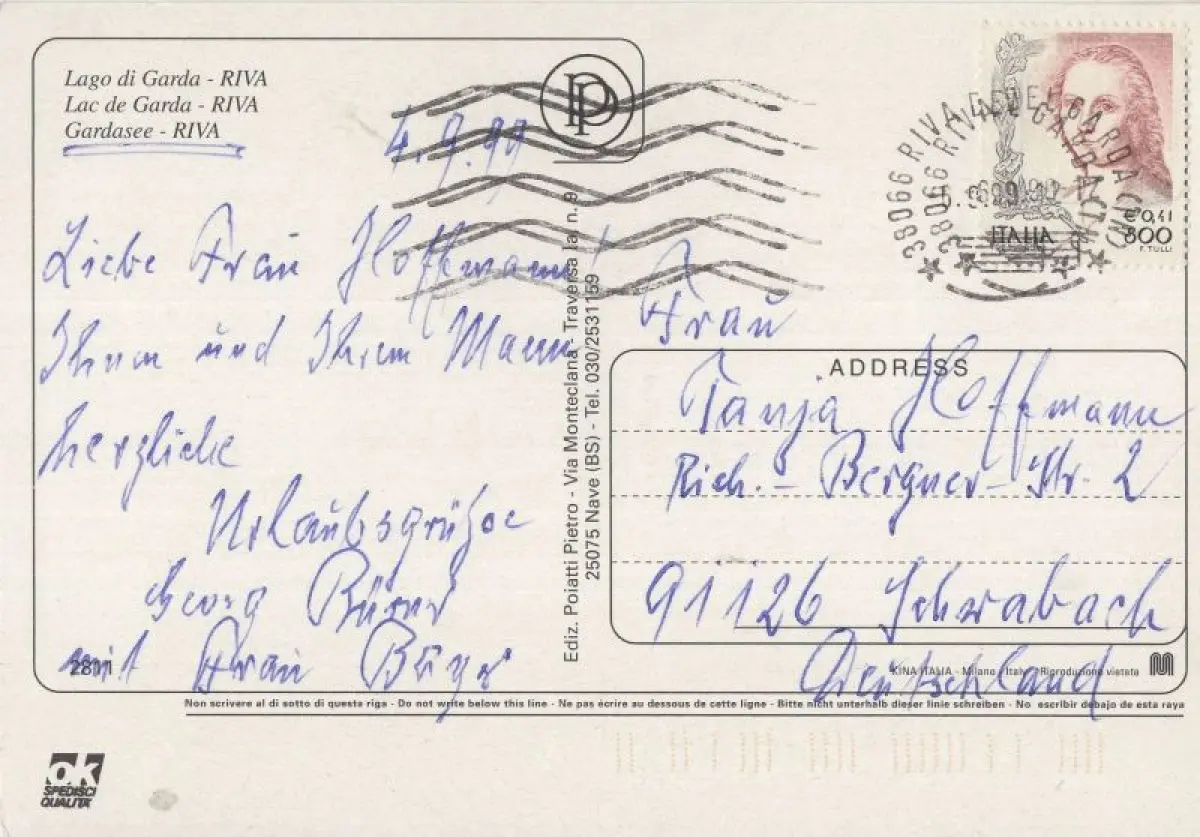 Lago di Garda - RIVA
Lac de Garda - RIVA
Gardasee - RIVA
PP
4.9.99
Liebe Frau Hoffmann!
Ihnen und Ihrem Mann
herzliche
Urlaubsgrüße
Georg
mit Frau
2811
Ediz. Poiatti Pietro - Via Monteclana - Traversa Ia, n. 9
25075 Nave (BS) - Tel. 030/2531159
38066 RIVA DEL GARDA (TN)
38066 RIVA DEL GARDA (TN)
ITALIA
€ 0,41
800
F. TULLI
Frau
ADDRESS
Tanja Hoffmann
Rich.-Bergner-Str. 2
91126 Schwabach
Deutschland
KINA ITALIA - Milano - Italy - Riproduzione vietata
Non scrivere al di sotto di questa riga - Do not write below this line - Ne pas écrire au dessous de cette ligne - Bitte nicht unterhalb dieser linie schreiben - No escribir debajo de esta raya
ok
SPEDISCI
QUALITÀ